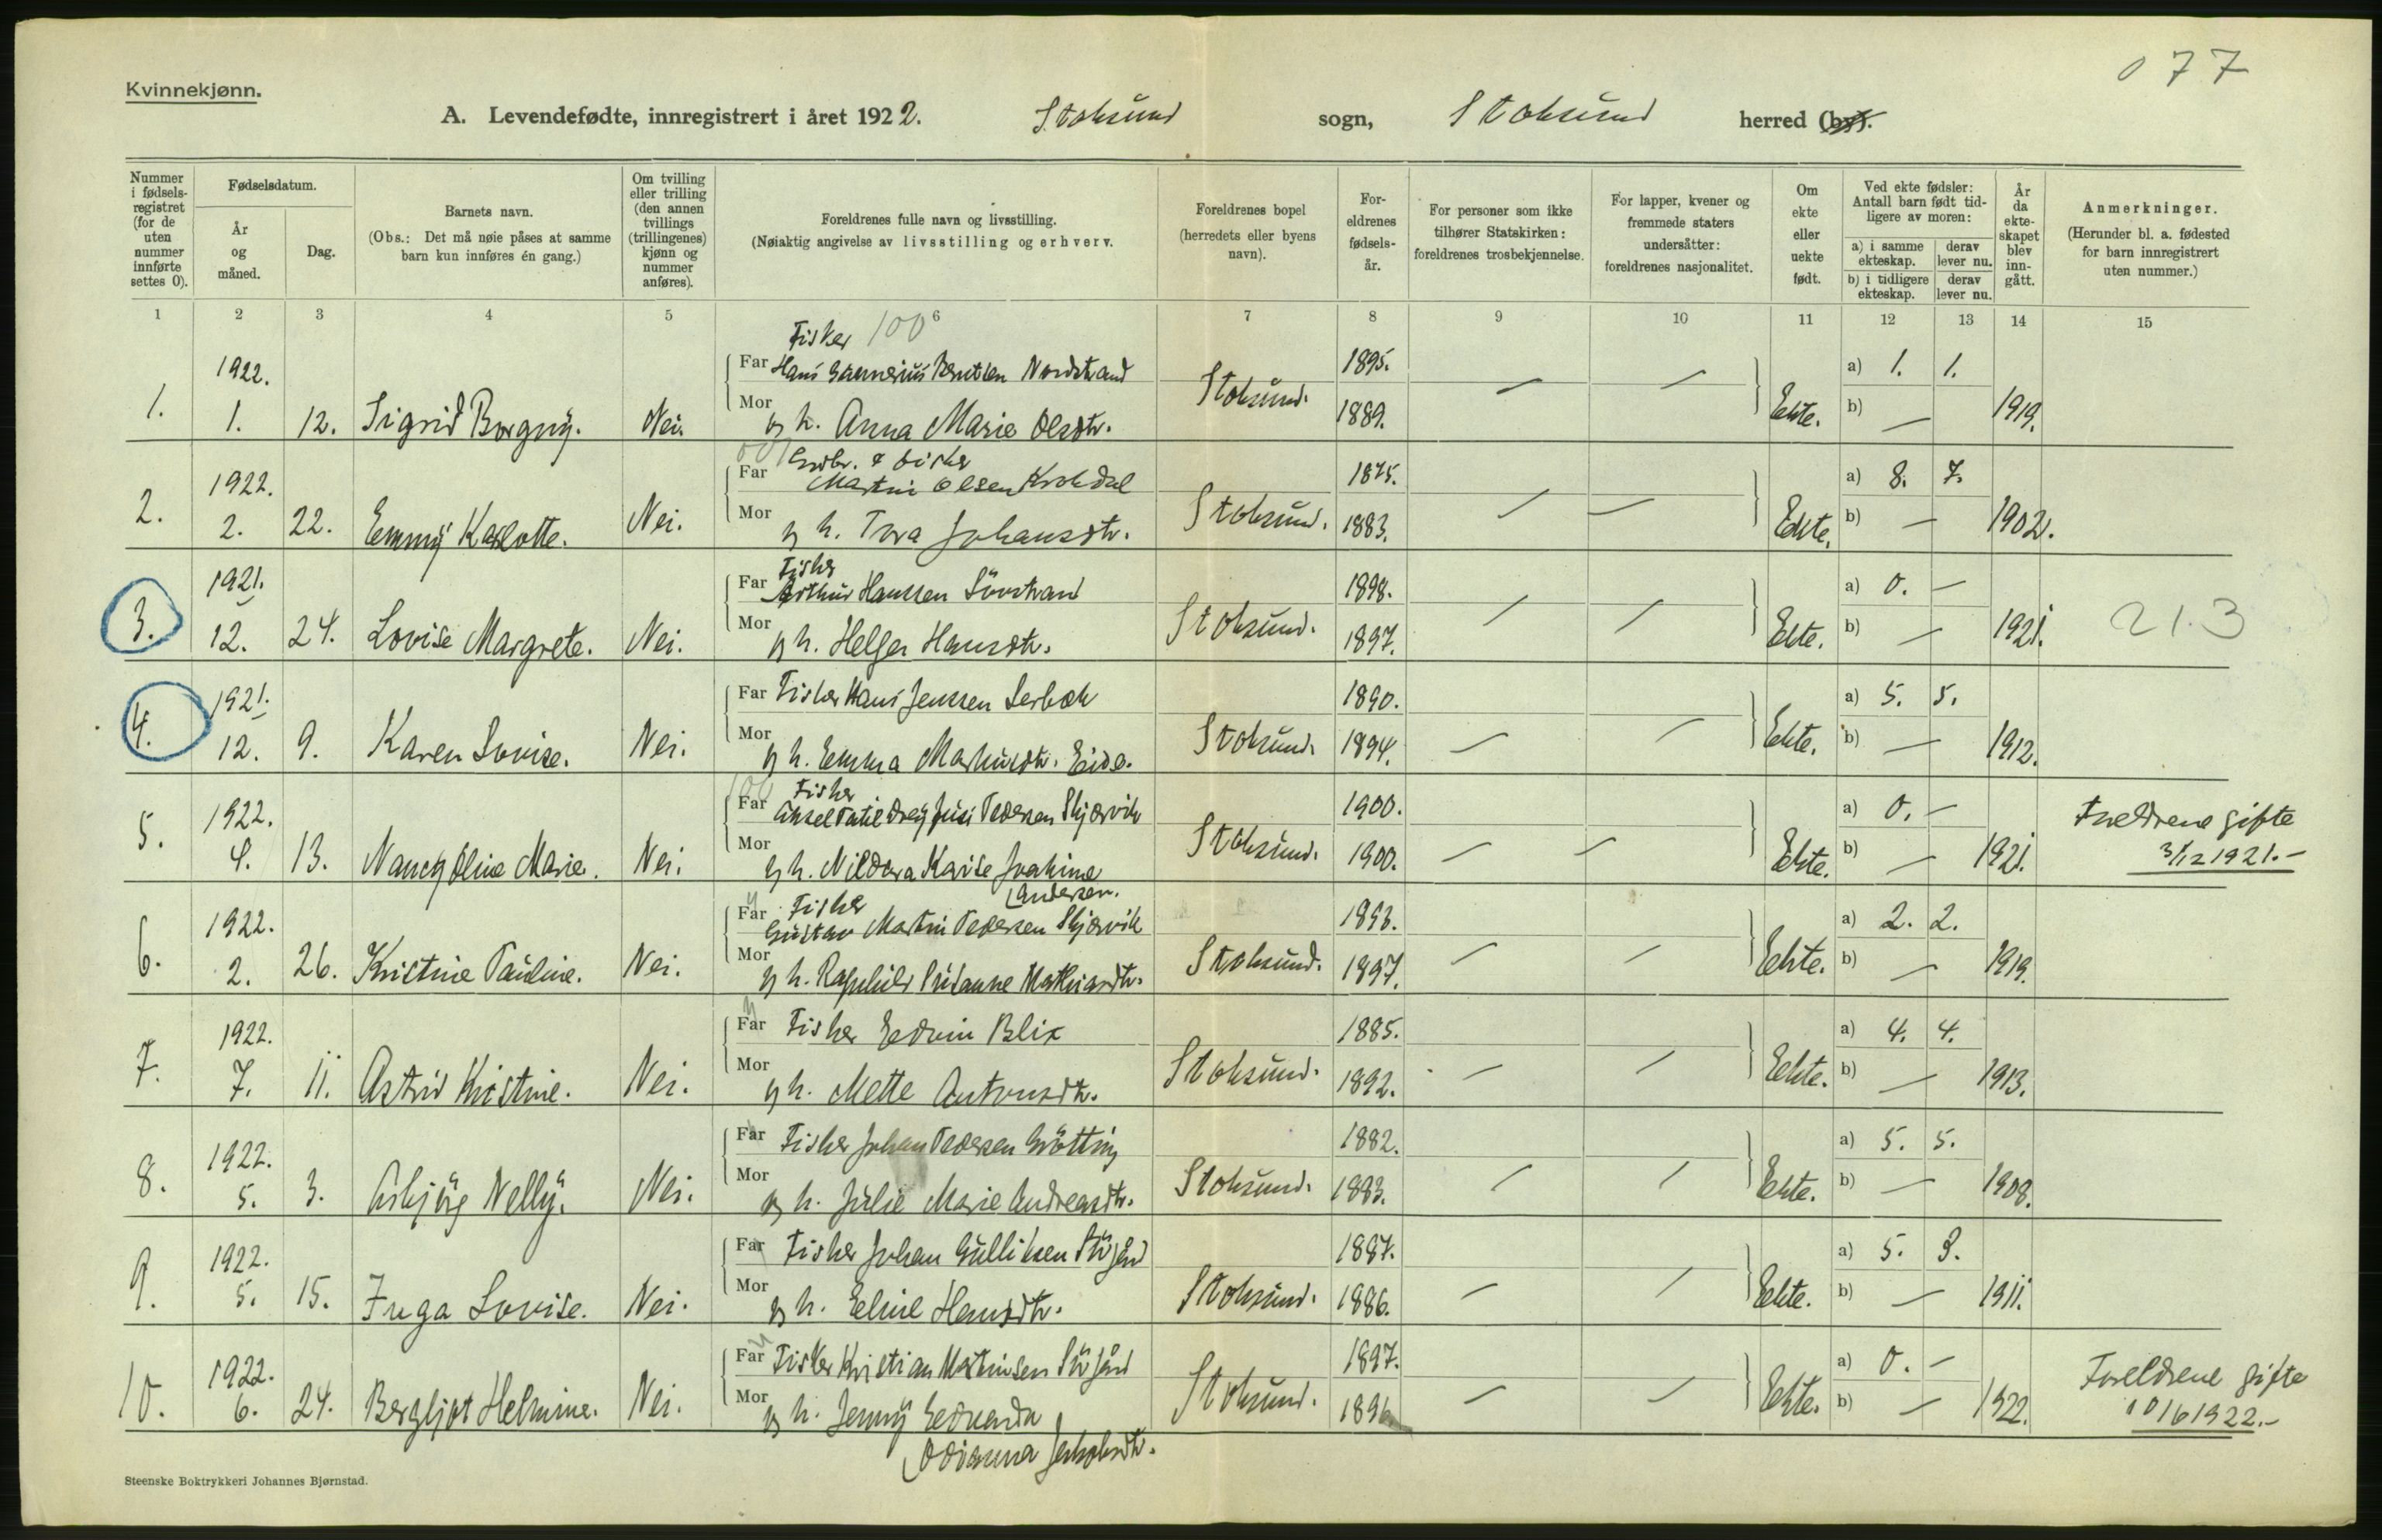 077
Kvinnekjønn.
A. Levendefødte, innregistrert i året 1922. Stoksund sogn, Stoksund herred (by).
Nummer i fødsels-registret (for de uten nummer innførte settes 0).
Fødselsdatum.
År og måned.
Dag.
Barnets navn.
(Obs.: Det må nøie påses at samme barn kun innføres én gang.)
Om tvilling eller trilling (den annen tvillings (trillingenes) kjønn og nummer anføres).
Foreldrenes fulle navn og livsstilling.
(Nøiaktig angivelse av livsstilling og erhverv.
Foreldrenes bopel (herredets eller byens navn).
For-eldrenes fødsels-år.
For personer som ikke tilhører Statskirken: foreldrenes trosbekjennelse.
For lapper, kvener og fremmede staters undersåtter: foreldrenes nasjonalitet.
Om ekte eller uekte født.
Ved ekte fødsler: Antall barn født tid-ligere av moren:
a) i samme ekteskap. derav lever nu.
b) i tidligere ekteskap. derav lever nu.
År da ekte-skapet blev inn-gått.
Anmerkninger.
(Herunder bl. a. fødested for barn innregistrert uten nummer.)
1 2 3 4 5 6 7 8 9 10 11 12 13 14 15
Fisker 100
1922. Far Hans Gunnerius Bentsen Nordstrand 1895. a) 1. 1.
1. 1. 12. Sigrid Borgny. Nei. Mor og h. Anna Marie Olsdtr. Stoksund. 1889. — — Ekte. b) — 1919.
Grdbr. & fisker
1922. Far Martin Olsen Krokdal 1875. a) 8. 7.
2. 2. 22. Emmy Karlotte. Nei. Mor og h. Tora Johansdtr. Stoksund. 1883. — — Ekte. b) — 1902.
Fisker
1921. Far Arthur Hanssen Sörstrand 1898. a) 0. —
3. 12. 24. Lovise Margrete. Nei. Mor og h. Helga Hansdtr. Stoksund. 1897. — — Ekte. b) — 1921. 21.3
1921. Far Fisker Hans Jenssen Lerbæk 1890. a) 5. 5.
4. 12. 9. Karen Lovise. Nei. Mor og h. Emma Eide. Stoksund. 1894. — — Ekte. b) — 1912.
100 Fisker
1922. Far Aksel Pedersen Skjærvik 1900. a) 0. — Foreldrene gifte
5. 4. 13. Nancy Oline Marie. Nei. Mor og h. Joakime Stoksund. 1900. — — Ekte. b) — 1921. 3/12 1921.—
Andersen.
Fisker
1922. Far Gustav Martin Pedersen Skjærvik 1893. a) 2. 2.
6. 2. 26. Kristine Pauline. Nei. Mor og h. Ragnhild Susanne Stoksund. 1897. — — Ekte. b) — 1919.
1922. Far Fisker Edvin Blix 1885. a) 4. 4.
7. 7. 11. Astrid Kristine. Nei. Mor og h. Mette Antonsdtr. Stoksund. 1892. — — Ekte. b) — 1913.
1922. Far Fisker Johan Pedersen Grötting 1882. a) 5. 5.
8. 5. 3. Asbjörg Nelly. Nei. Mor og h. Julie Marie Andreasdtr. Stoksund. 1883. — — Ekte. b) — 1908.
1922. Far Fisker Johan Gulliksen Sörgård 1887. a) 5. 3.
9. 5. 15. Inga Lovise. Nei. Mor og h. Eline Hansdtr. Stoksund. 1886. — — Ekte. b) — 1911.
1922. Far Fisker Kristian Martinsen Sörgård 1897. a) 0. — Foreldrene gifte
10. 6. 24. Bergljot Helmine. Nei. Mor og h. Jenny Edvarda Stoksund. 1896 — — Ekte. b) — 1922. 10/6 1922.—
Jakobsdtr.
Steenske Boktrykkeri Johannes Bjørnstad.